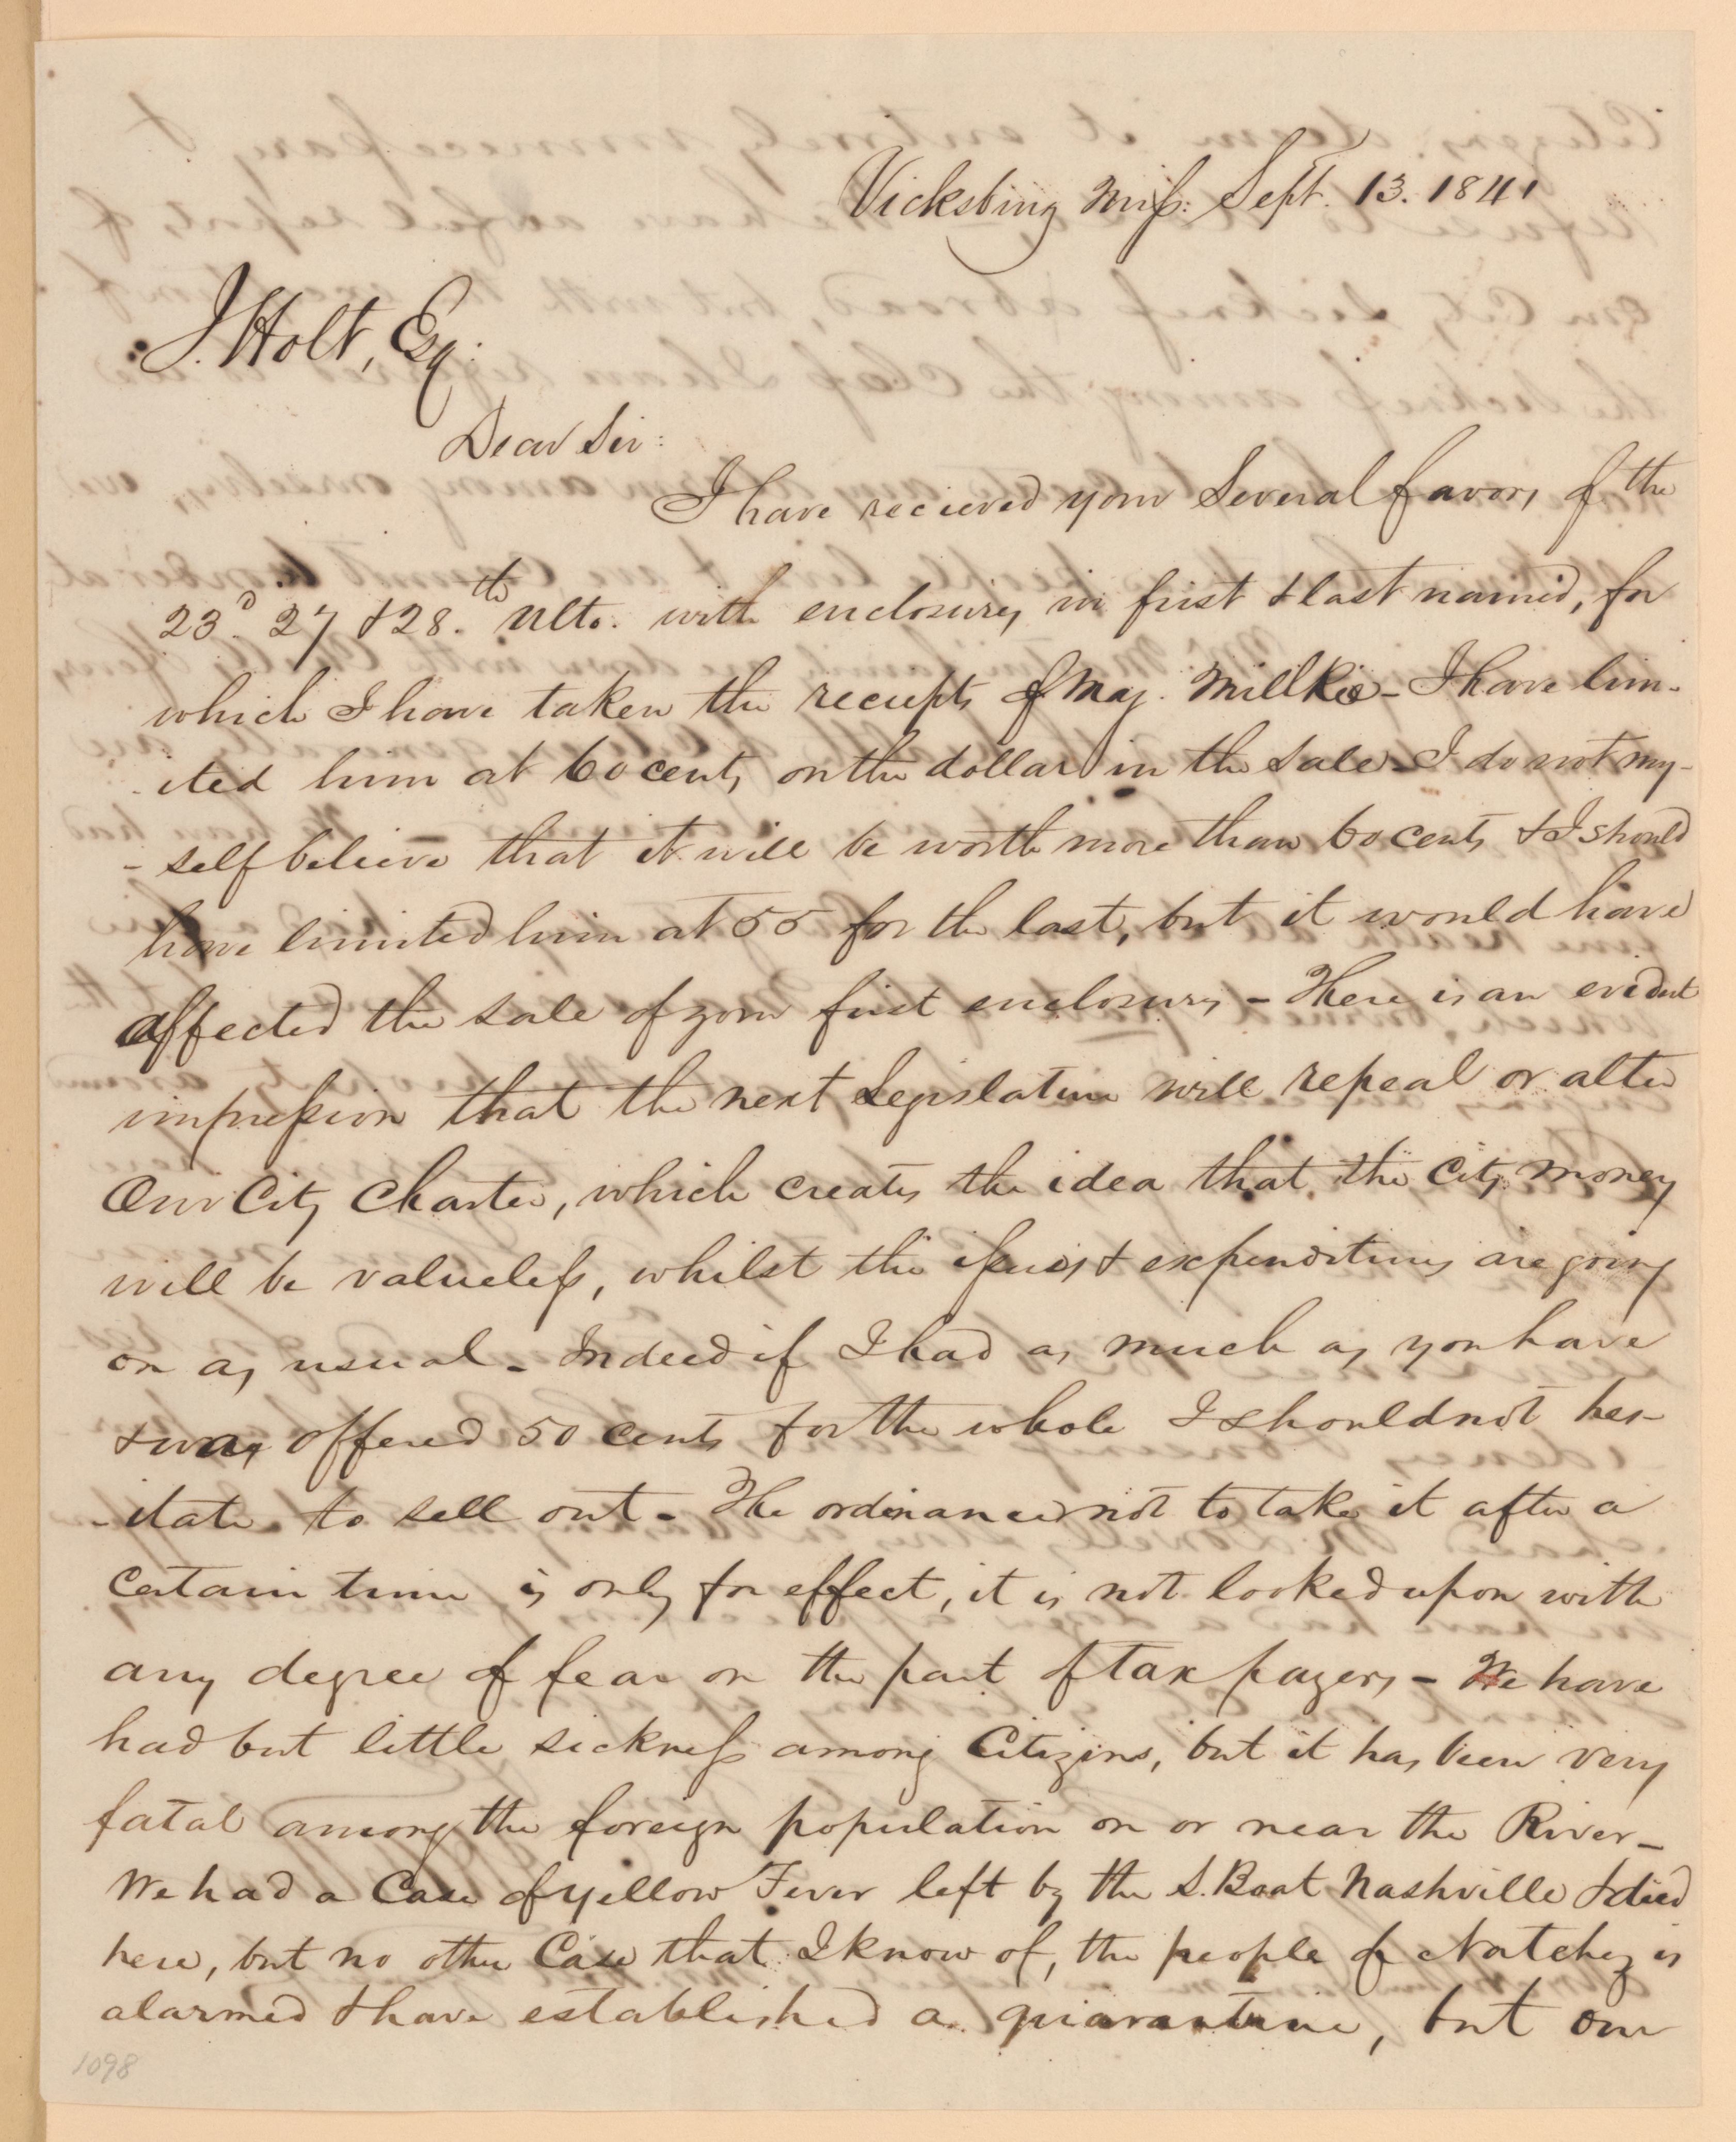 Vicksburg Miss: Sept. 13. 1841
J. Holt, Esq:
Dear Sir:
I have recieved your several favors of the
23d. 27 & 28.th Ulto. with enclosures in first & last named, for
which I have taken the reciepts of Maj. Millkie - I have lim-
-ited him at 60 cents on the dollar in the sale - I do not my-
-self believe that it will be worth more than 60 cents & I should
have limited him at 55 for the last, but it would have
affected the sale of your first enclosures - There is an evident
impression that the next Legislature will repeal or alter
Our City Charter, which creates the idea that the City money
will be valueless, whilst the issues & expenditures are going
on as usual - Indeed if I had as much as you have
& was offered 50 cents for the whole I should not hes-
-itate to sell out - The ordinance not to take it after a
certain time is only for effect, it is not looked upon with
any degree of fear on the part of tax payers - We have
had but little sickness among Citizens, but it has been very
fatal among the foreign population on or near the River -
We had a Case of Yellow Fever left by the S. Boat Nashville & died
here, but no other Case that I know of, the people of Natchez is
alarmed & have established a quarantine, but our
1098